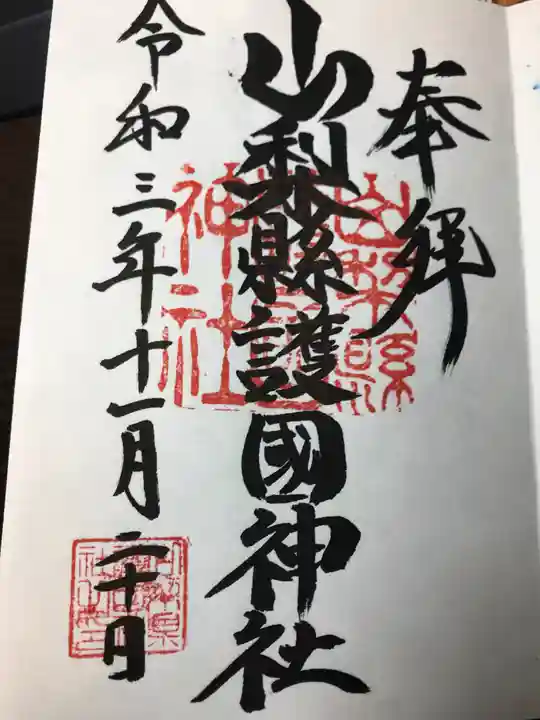 奉拜
山梨縣護國神社
令和三年十一月二十日